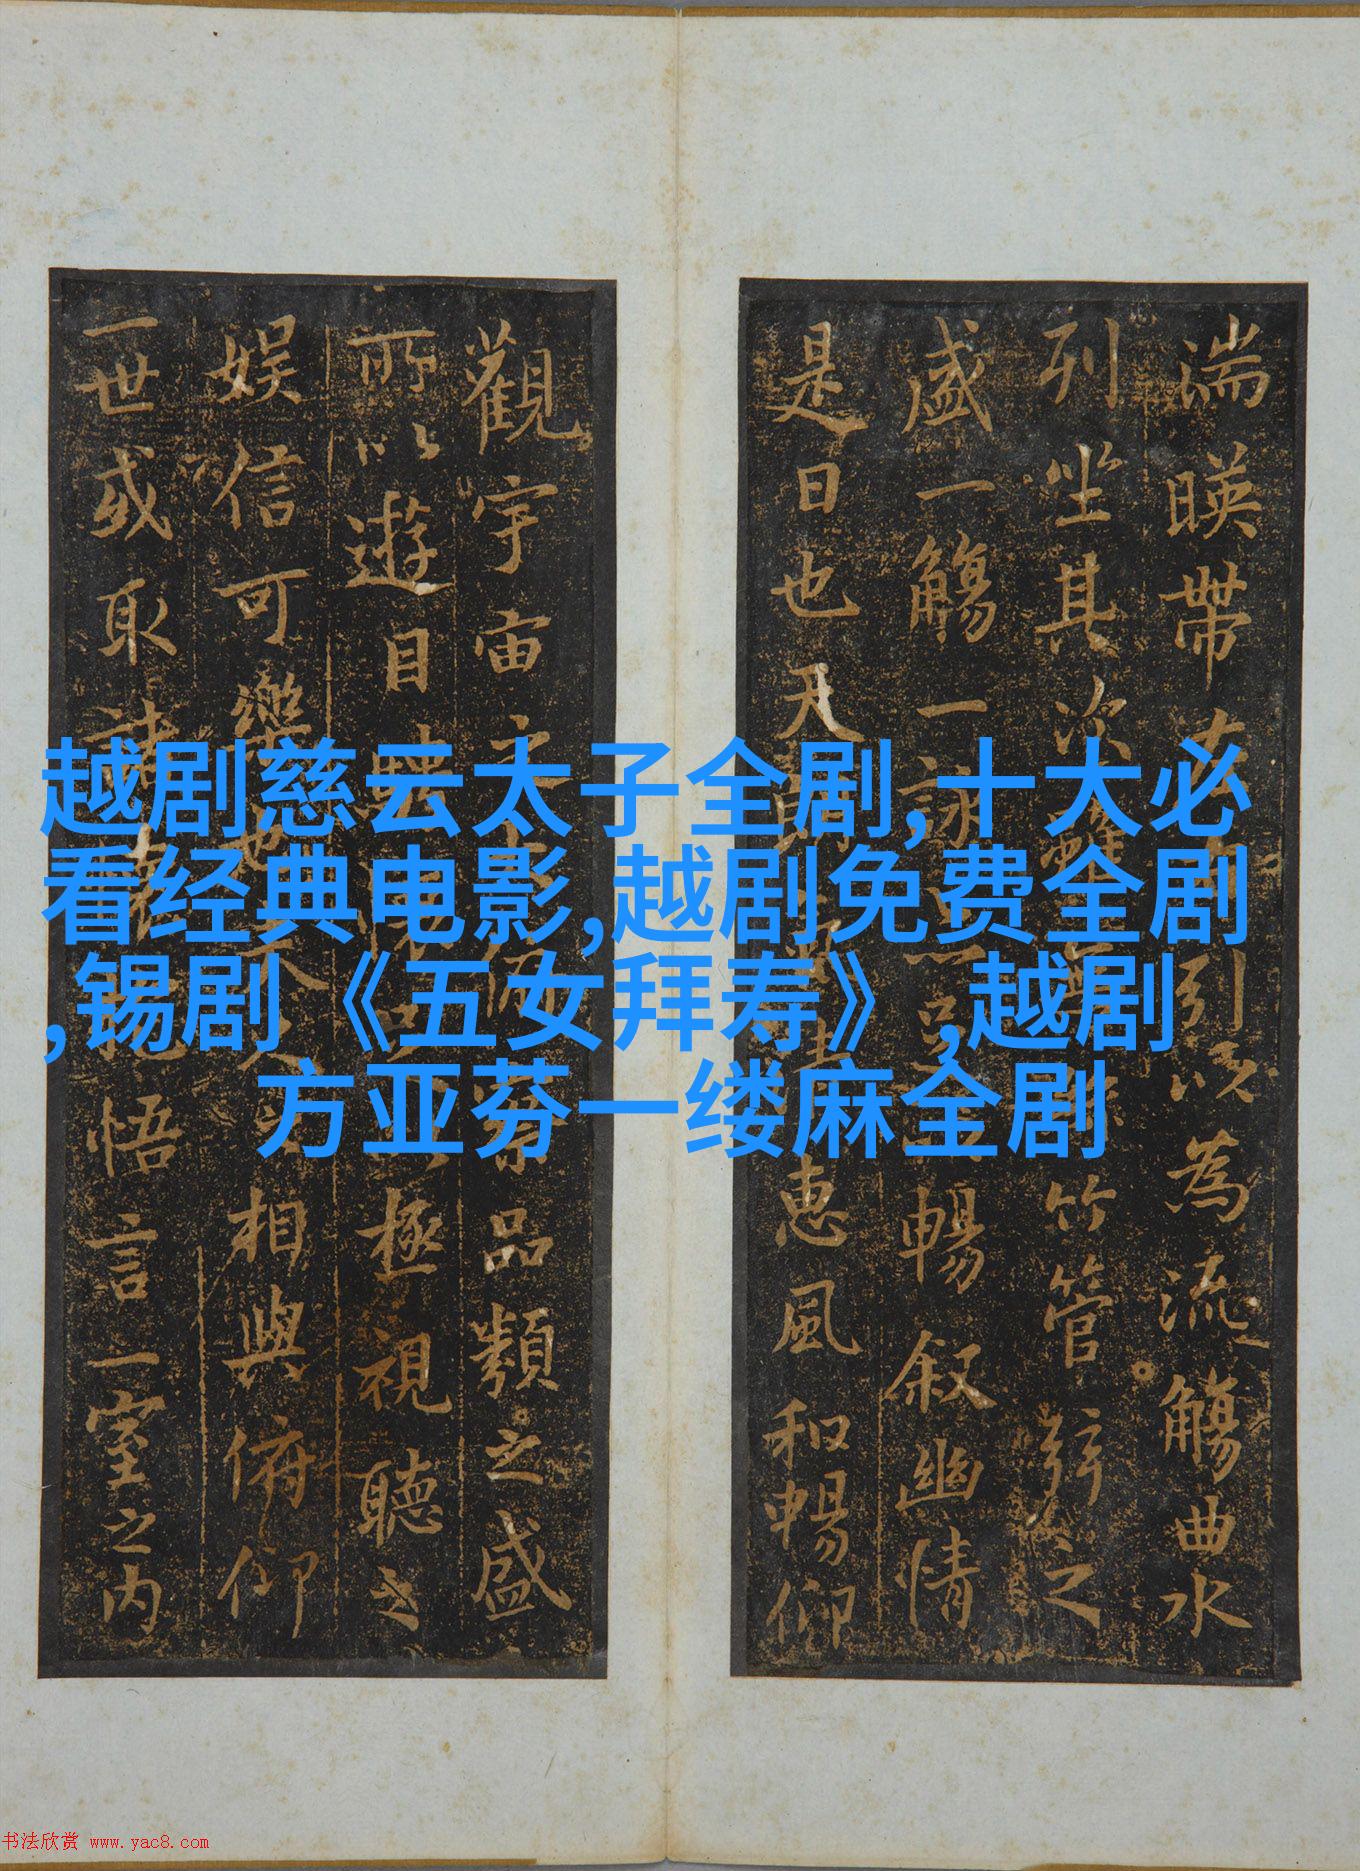 湍暎帶左引以為流觴曲水
列坐其次竹管弦之
盛一觴一詠暢叙幽情
是日也天惠風和暢仰
觀宇宙之品類之盛
所以遊目極視聽之
娱信可樂相與俯仰
一世或取諸悟言一室之内
越剧慈云太子全剧,十大必
看经典电影,越剧免费全剧
,锡剧《五女拜寿》,越剧
方亚芬一缕麻全剧
书法欣赏 www.yac8.com